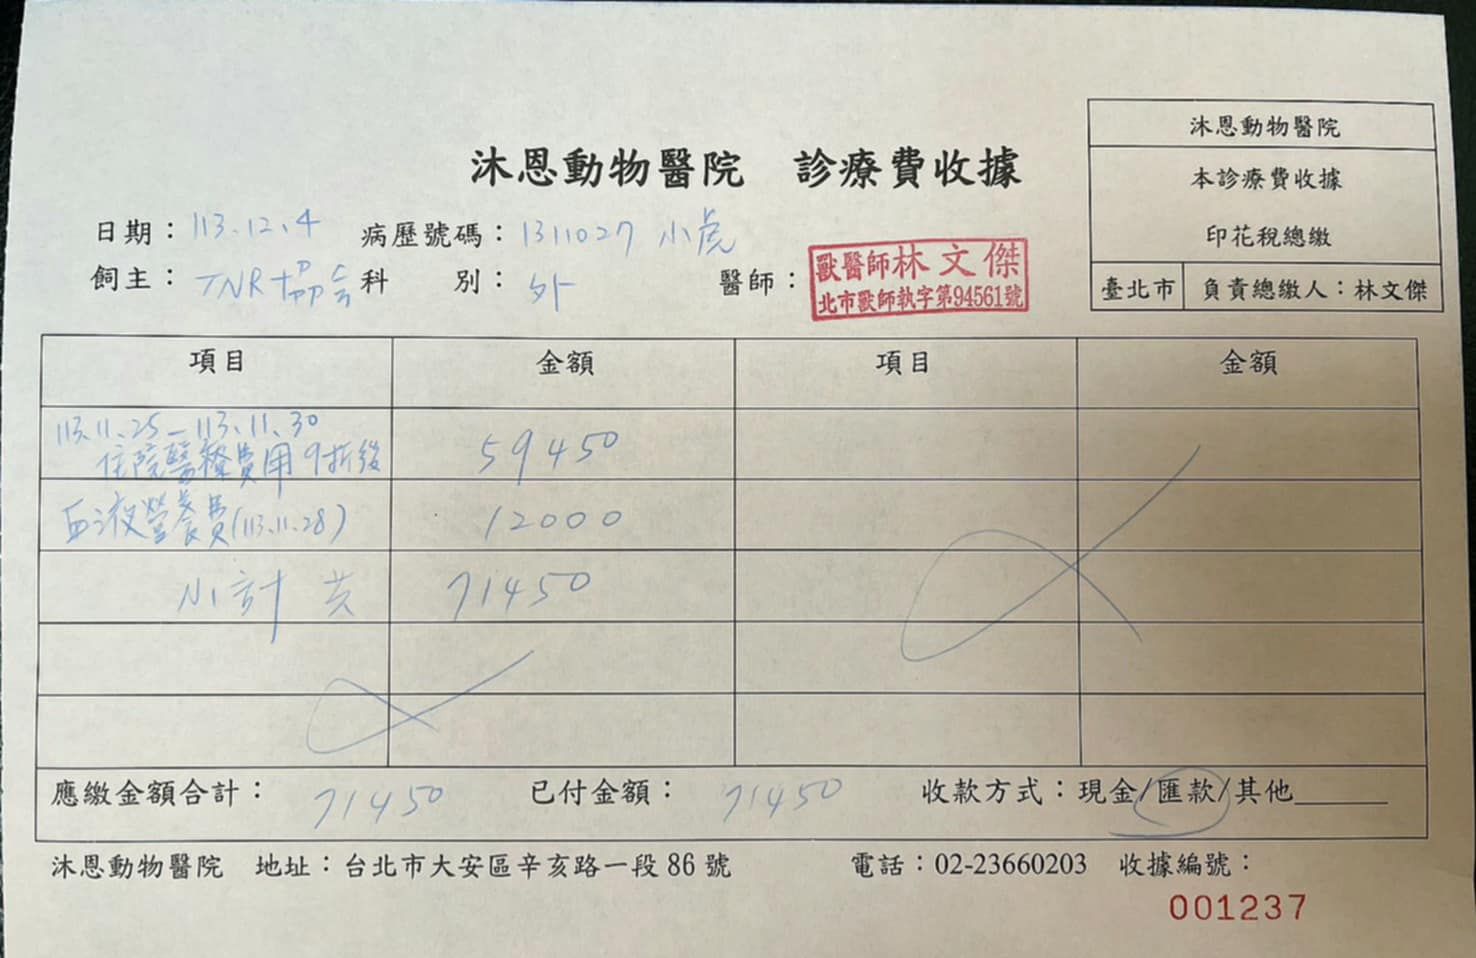 沐恩動物醫院
本診療費收據
印花稅總繳
臺北市 負責總繳人：林文傑
沐恩動物醫院 診療費收據
日期：113.12.4 病歷號碼：1311027 小虎
飼主：TNR協會 科 別：外 醫師：
獸醫師林文傑
北市獸師執字第94561號
項目 金額 項目 金額
113.11.25-113.11.30
住院醫療費用9折後 59450
血液營養費(113.11.28) 12000
小計 共 71450
應繳金額合計：71450 已付金額：71450 收款方式：現金/匯款/其他______
沐恩動物醫院 地址：台北市大安區辛亥路一段86號 電話：02-23660203 收據編號：
001237